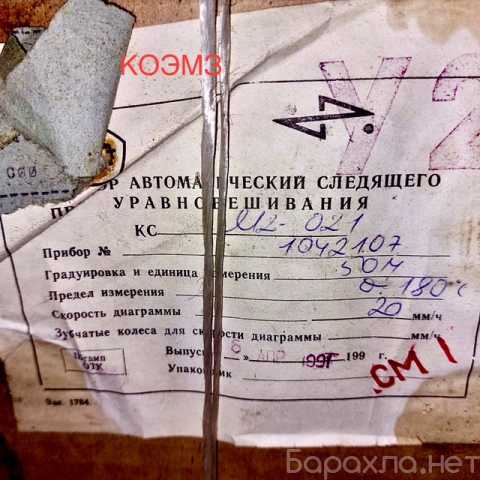 КОЭМЗ
У2
С60
АВТОМАТИЧЕСКИЙ СЛЕДЯЩЕГО
УРАВНОВЕШИВАНИЯ
КС М2-021
Прибор № 1042107
Градуировка и единица измерения 50М
Предел измерения 0-180°C
Скорость диаграммы 20 мм/ч
Зубчатые колеса для скорости диаграммы мм/ч
Штамп ОТУ
Выпуск 8 » АПР 1991 199 г.
Упаковщик
СМ1
Зак. 1784.
Барахла.нет